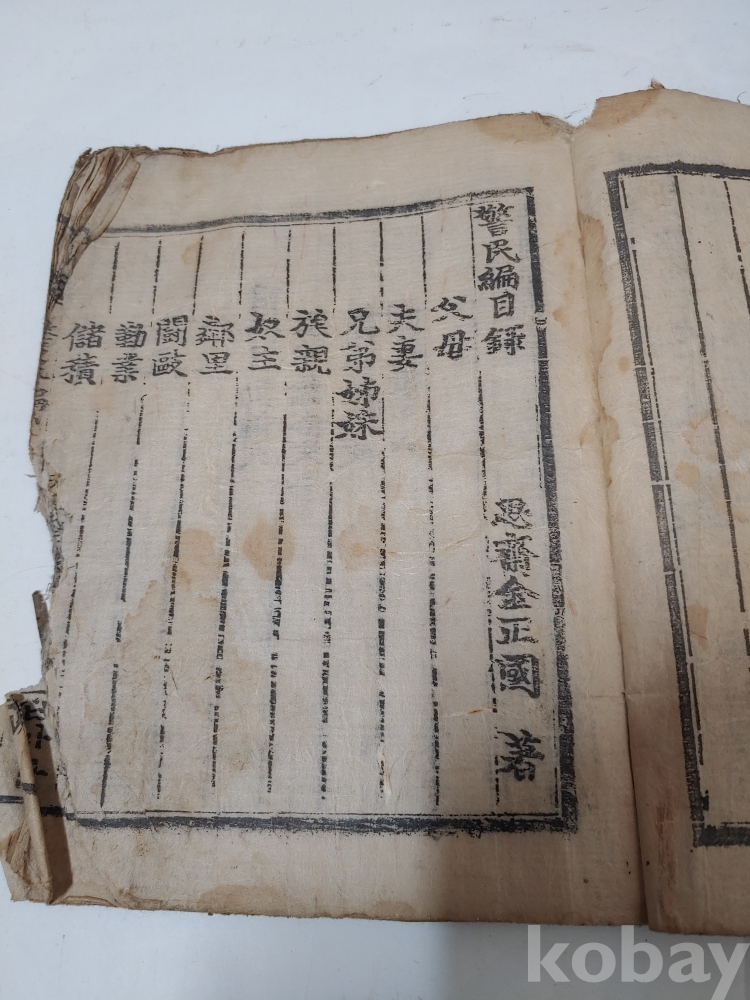 警民編目錄
思齋金正國 著
父母
夫妻
兄弟姊妹
族親
奴主
鄰里
鬪毆
勤業
儲積
kobay